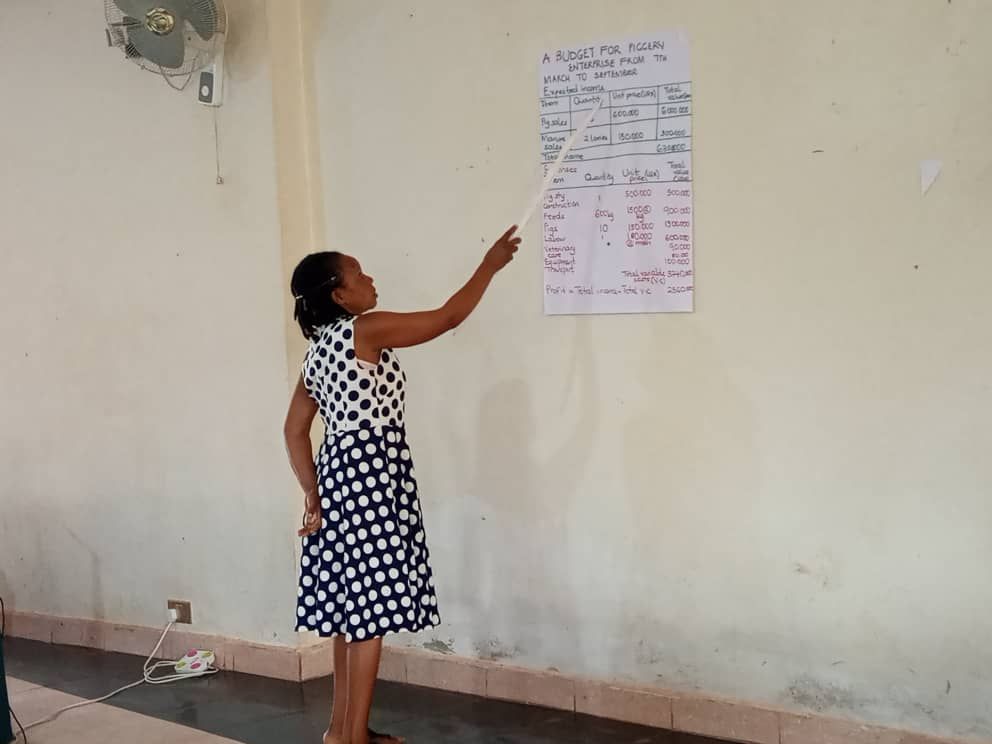 A BUDGET FOR PIGGERY
ENTERPRISE FROM 7TH
MARCH TO SEPTEMBER
Expected income
Item Quantity Unit price (UGX) Total value
Pig sales 600.000 6.000.000
Manure sales 2 lorries 150.000 300.000
Total
Item Quantity Unit price (UGX) Total value
Pig sty construction 1 500.000 500.000
Feeds 600kg 1500@ kg 900.000
Pigs 10 150.000 1500.000
Labour 1 @ month 600.000
Veterinary care 90.000
Equipment
Transport 100.000
Total variable costs (V.C) 3740.000
Profit = Total income - Total V.C